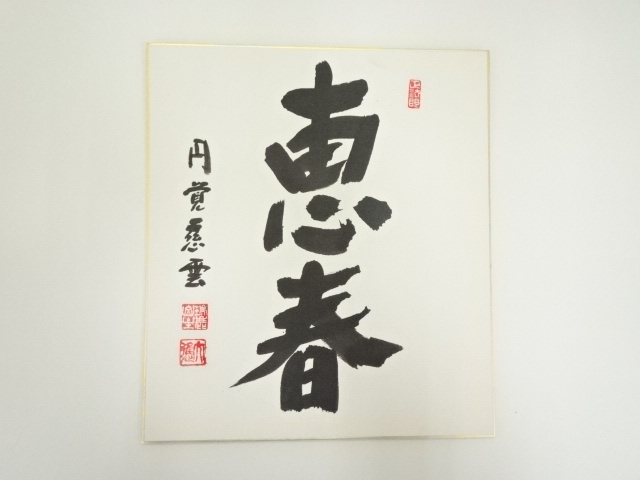 恵春
円覚慈雲